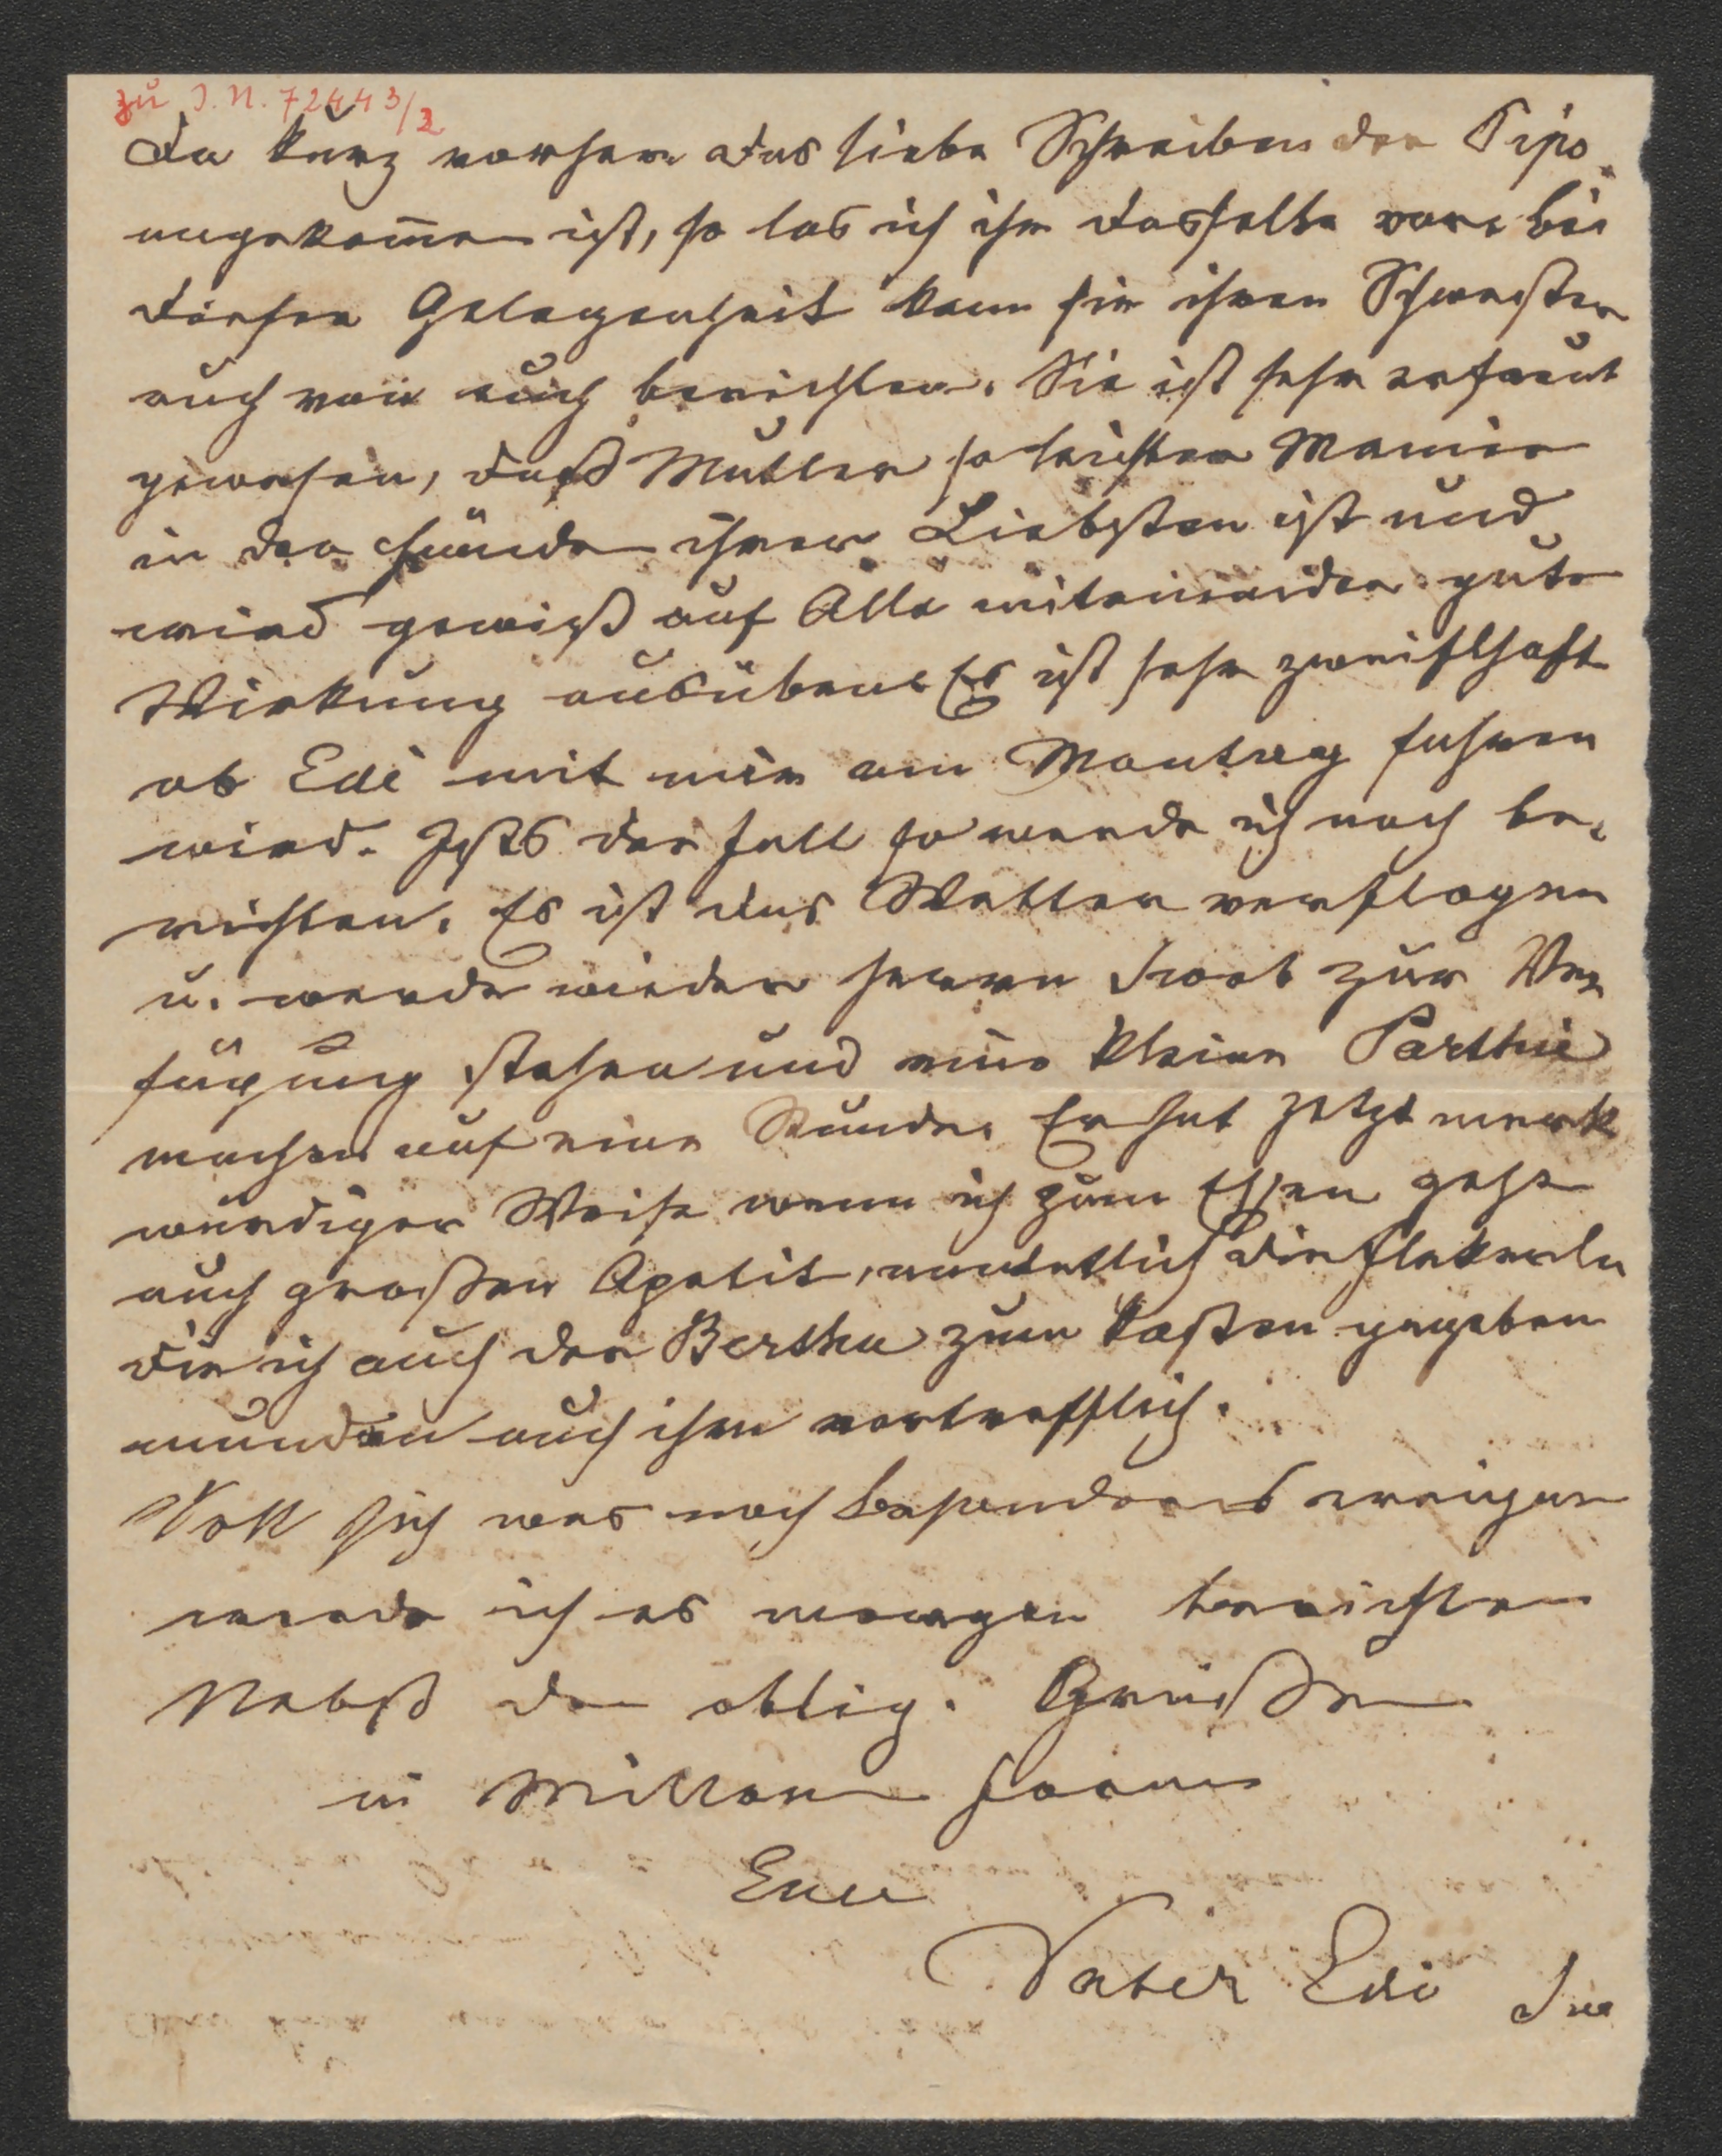 zu I.N. 72443/2
Da kurz vorher das liebe Schreiben der Pipo
angekommen ist, so las ich ihr dasselbe vor. bei
dieser Gelegenheit kann sie ihrer Schwester
auch von euch berichten. Sie ist sehr erfreut
gewesen, daß Mutter so leichter Manier
in den Händen ihrer Liebsten ist und
wird gewiß auf Alle miteinander gute
Wirkung ausüben. Es ist sehr zweiflhaft
ob Edi mit mir am Montag fahren
wird. Ists der Fall so werde ich noch be-
richten. Es ist das Wetter verflogen
u. werde wieder Herrn zur Ver-
fügung stehen und eine kleine Parthie
machen auf eine Stunde. Er hat jetzt merk
würdiger Weise wenn ich zum Essen gehe
auch großen Apetit, namentlich die
die ich auch der Bertha zum kosten gegeben
munden auch ihm vortrefflich.
Soll sich was noch besonderes ereignen
werde ich es morgen berichten
Nebst den oblig. Grüßen
in Form
Euer
Vater Edi